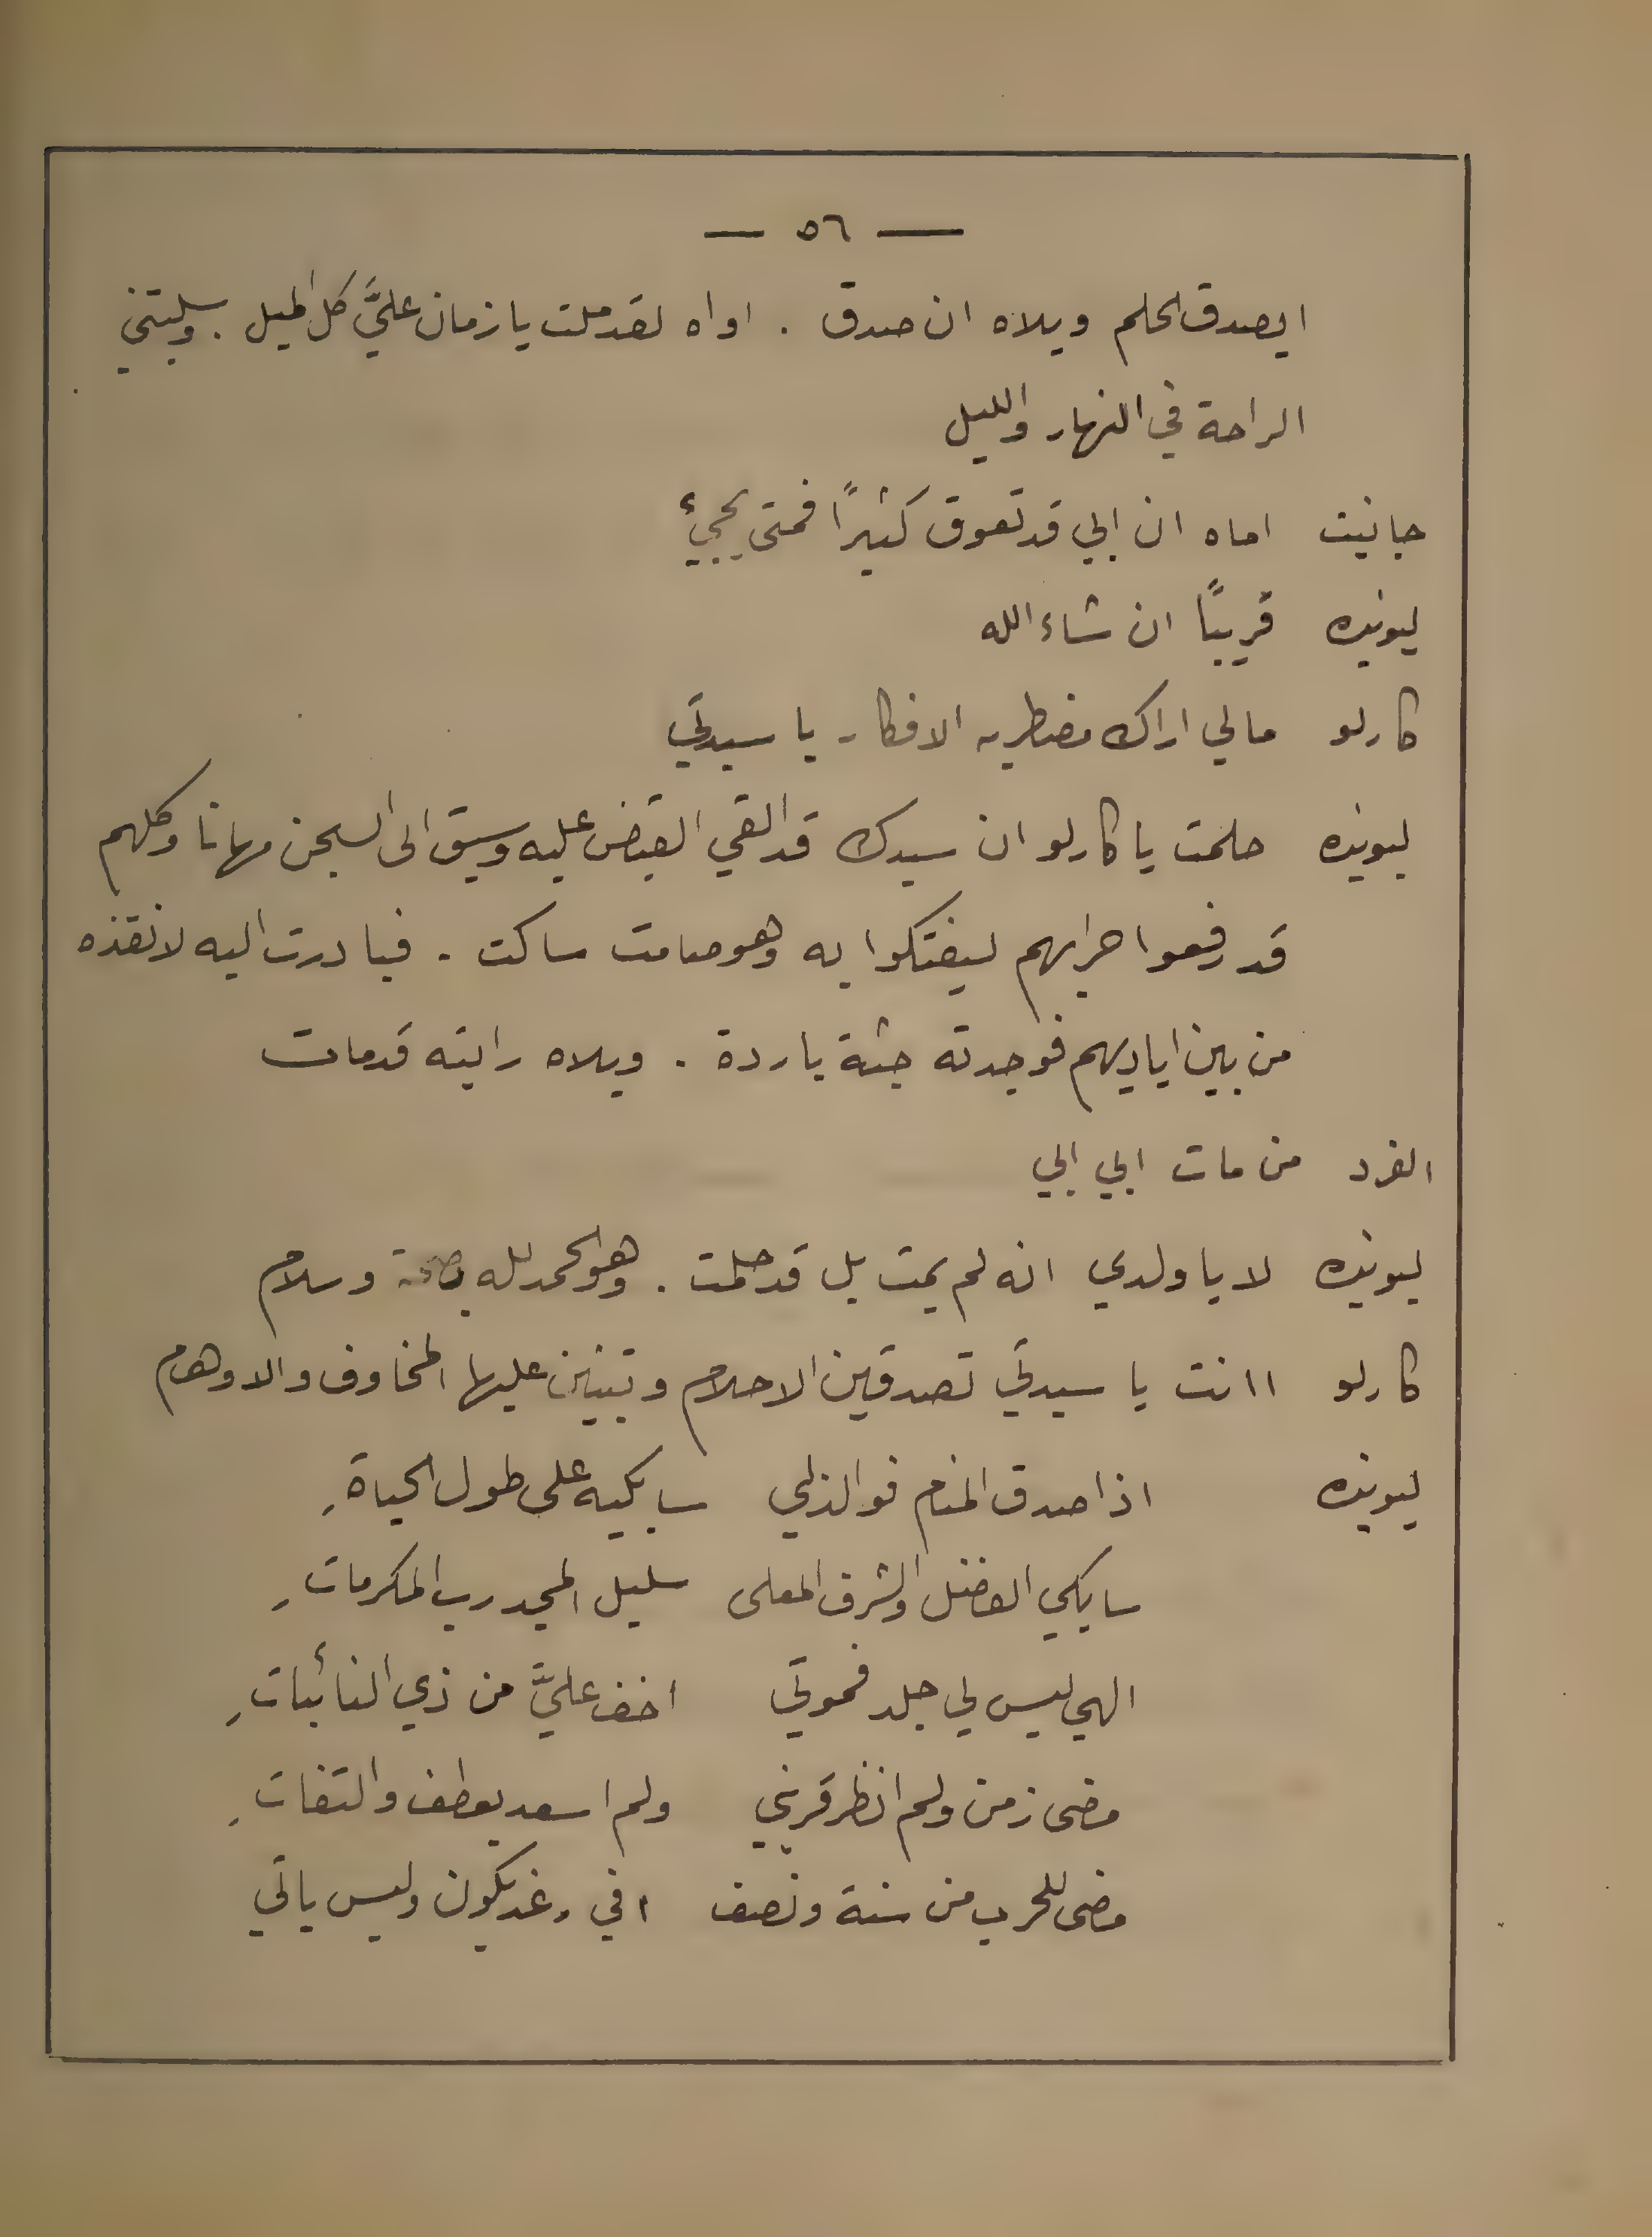 — ٥٦ —
ايصدق الحلم ويلاه ان صدق . اواه لقد ملت يا زمان عليَّ كل الميل . وسلبتني
الراحة في النهار والليل
جانيت اماه ان ابي قد تعوق كثيرًا فمتى يجيءُ
ليونيده قريبًا ان شاء الله
كارلو مالي اراك مضطربه الافكار يا سيدتي
ليونيده حلمت يا كارلو ان سيدك قد القي القبض عليه وسيق الى السجن مهانا وكلهم
قد رفعوا حرابهم ليفتكوا به وهو صامت ساكت . فبادرت اليه لانقذه
من بين اياديهم فوجدته جثة باردة . ويلاه رايته قد مات
الفرد من مات ابي ابي
ليونيده لا يا ولدي انه لم يمت بل قد حلمت . وهو الحمد لله بصحة وسلام
كارلو اانت يا سيدتي تصدقين الاحلام وتبنين عليها المخاوف والاوهام
ليونيده اذا صدق المنام فوالذلي سابكيه على طول الحياةِ
سابكي الفضل والشرف المعلى سليل المجد رب المكرماتِ
الهي ليس لي جلد فموتي اخف عليَّ من ذي النائباتِ
مضى زمن ولم انظر قريني ولم اسعد بعطف والتفاتِ
مضى للحرب من سنة ونصف افي رغد يكون وليس ياتي